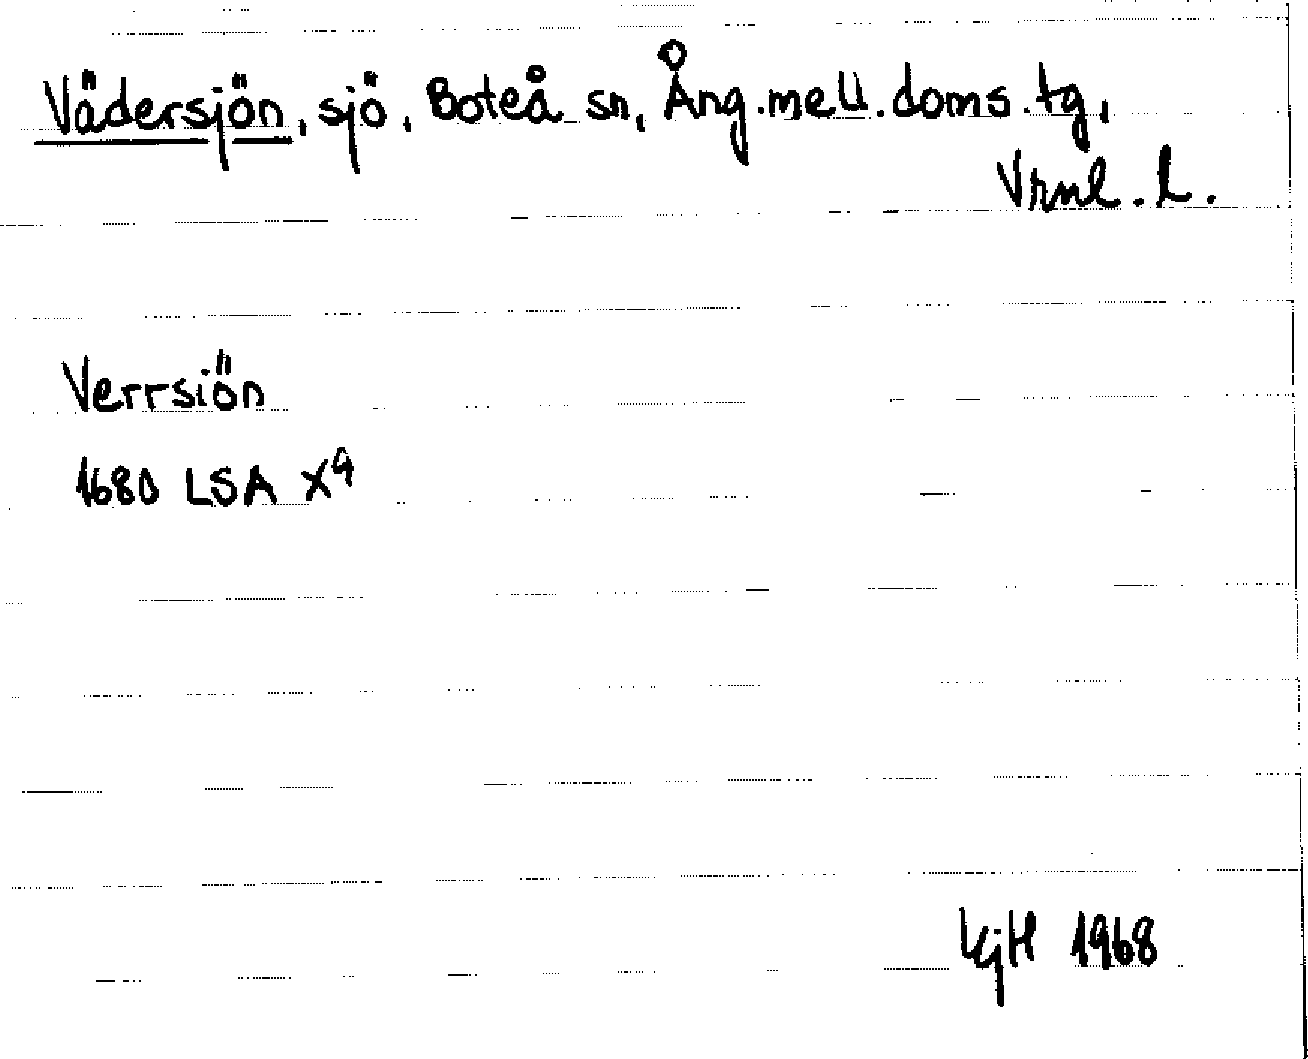 Vädersjön, sjö, Boteå sn, Ång.mell.doms.tg,
Vrnl.l.
Verrsiön
1680 LSA X⁹
KjH 1968